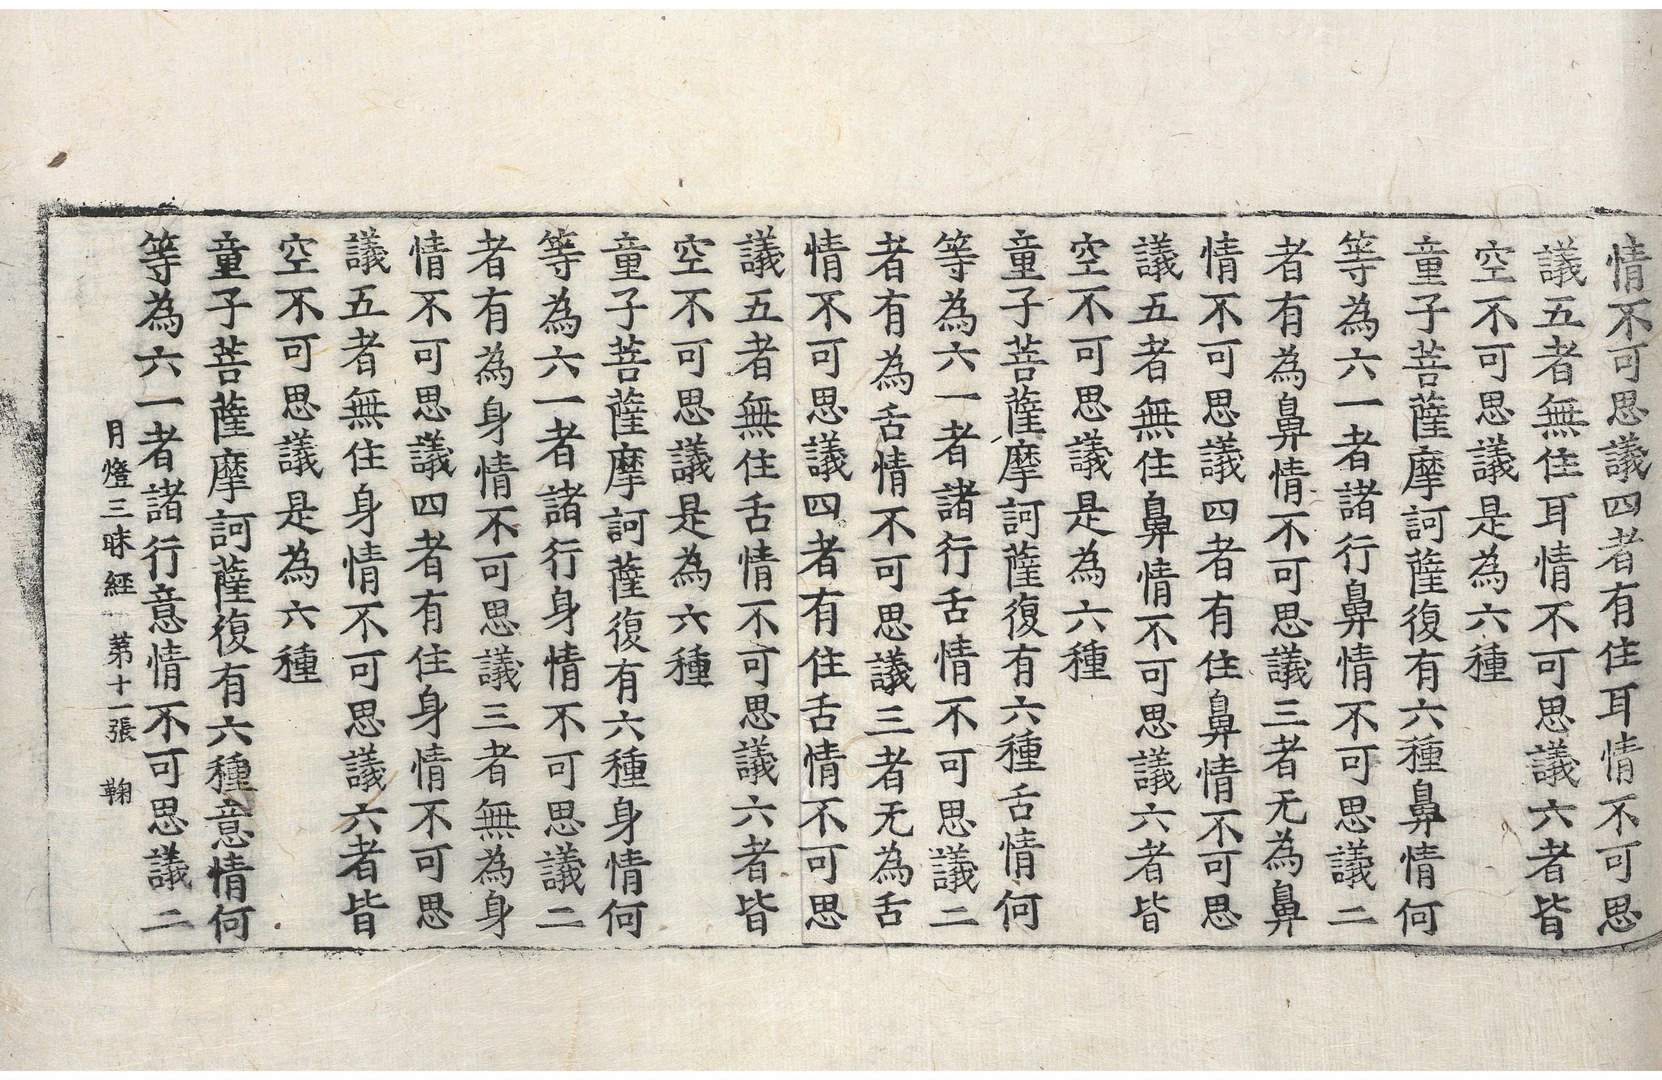 情不可思議四者有住耳情不可思
議五者無住耳情不可思議六者皆
空不可思議是為六種
童子菩薩摩訶薩復有六種鼻情何
等為六一者諸行鼻情不可思議二
者有為鼻情不可思議三者无為鼻
情不可思議四者有住鼻情不可思
議五者無住鼻情不可思議六者皆
空不可思議是為六種
童子菩薩摩訶薩復有六種舌情何
等為六一者諸行舌情不可思議二
者有為舌情不可思議三者无為舌
情不可思議四者有住舌情不可思
議五者無住舌情不可思議六者皆
空不可思議是為六種
童子菩薩摩訶薩復有六種身情何
等為六一者諸行身情不可思議二
者有為身情不可思議三者無為身
情不可思議四者有住身情不可思
議五者無住身情不可思議六者皆
空不可思議是為六種
童子菩薩摩訶薩復有六種意情何
等為六一者諸行意情不可思議二
月燈三昧經 第十一張 鞠